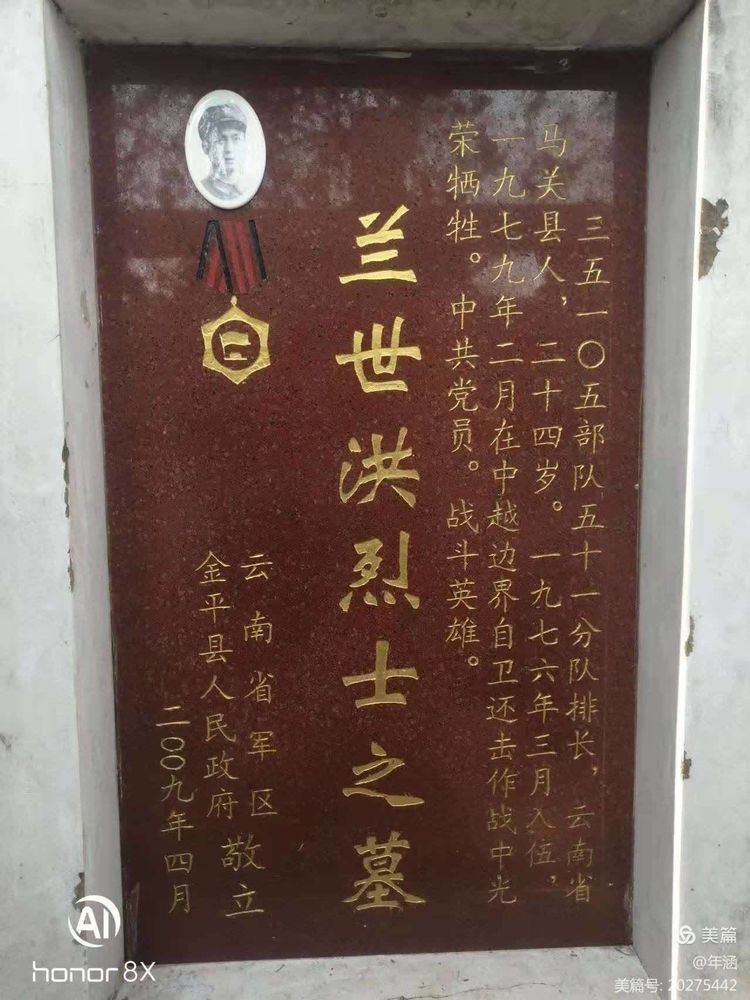 三五一〇五部队五十一分队排长，云南省
马关县人，二十四岁。一九七六年三月入伍，
一九七九年二月在中越边界自卫还击作战中光
荣牺牲。中共党员。战斗英雄。
兰世洪烈士之墓
云南省军区
金平县人民政府
敬立
二〇〇九年四月
AI
honor 8X
美篇
@年涵
美篇号: 20275442